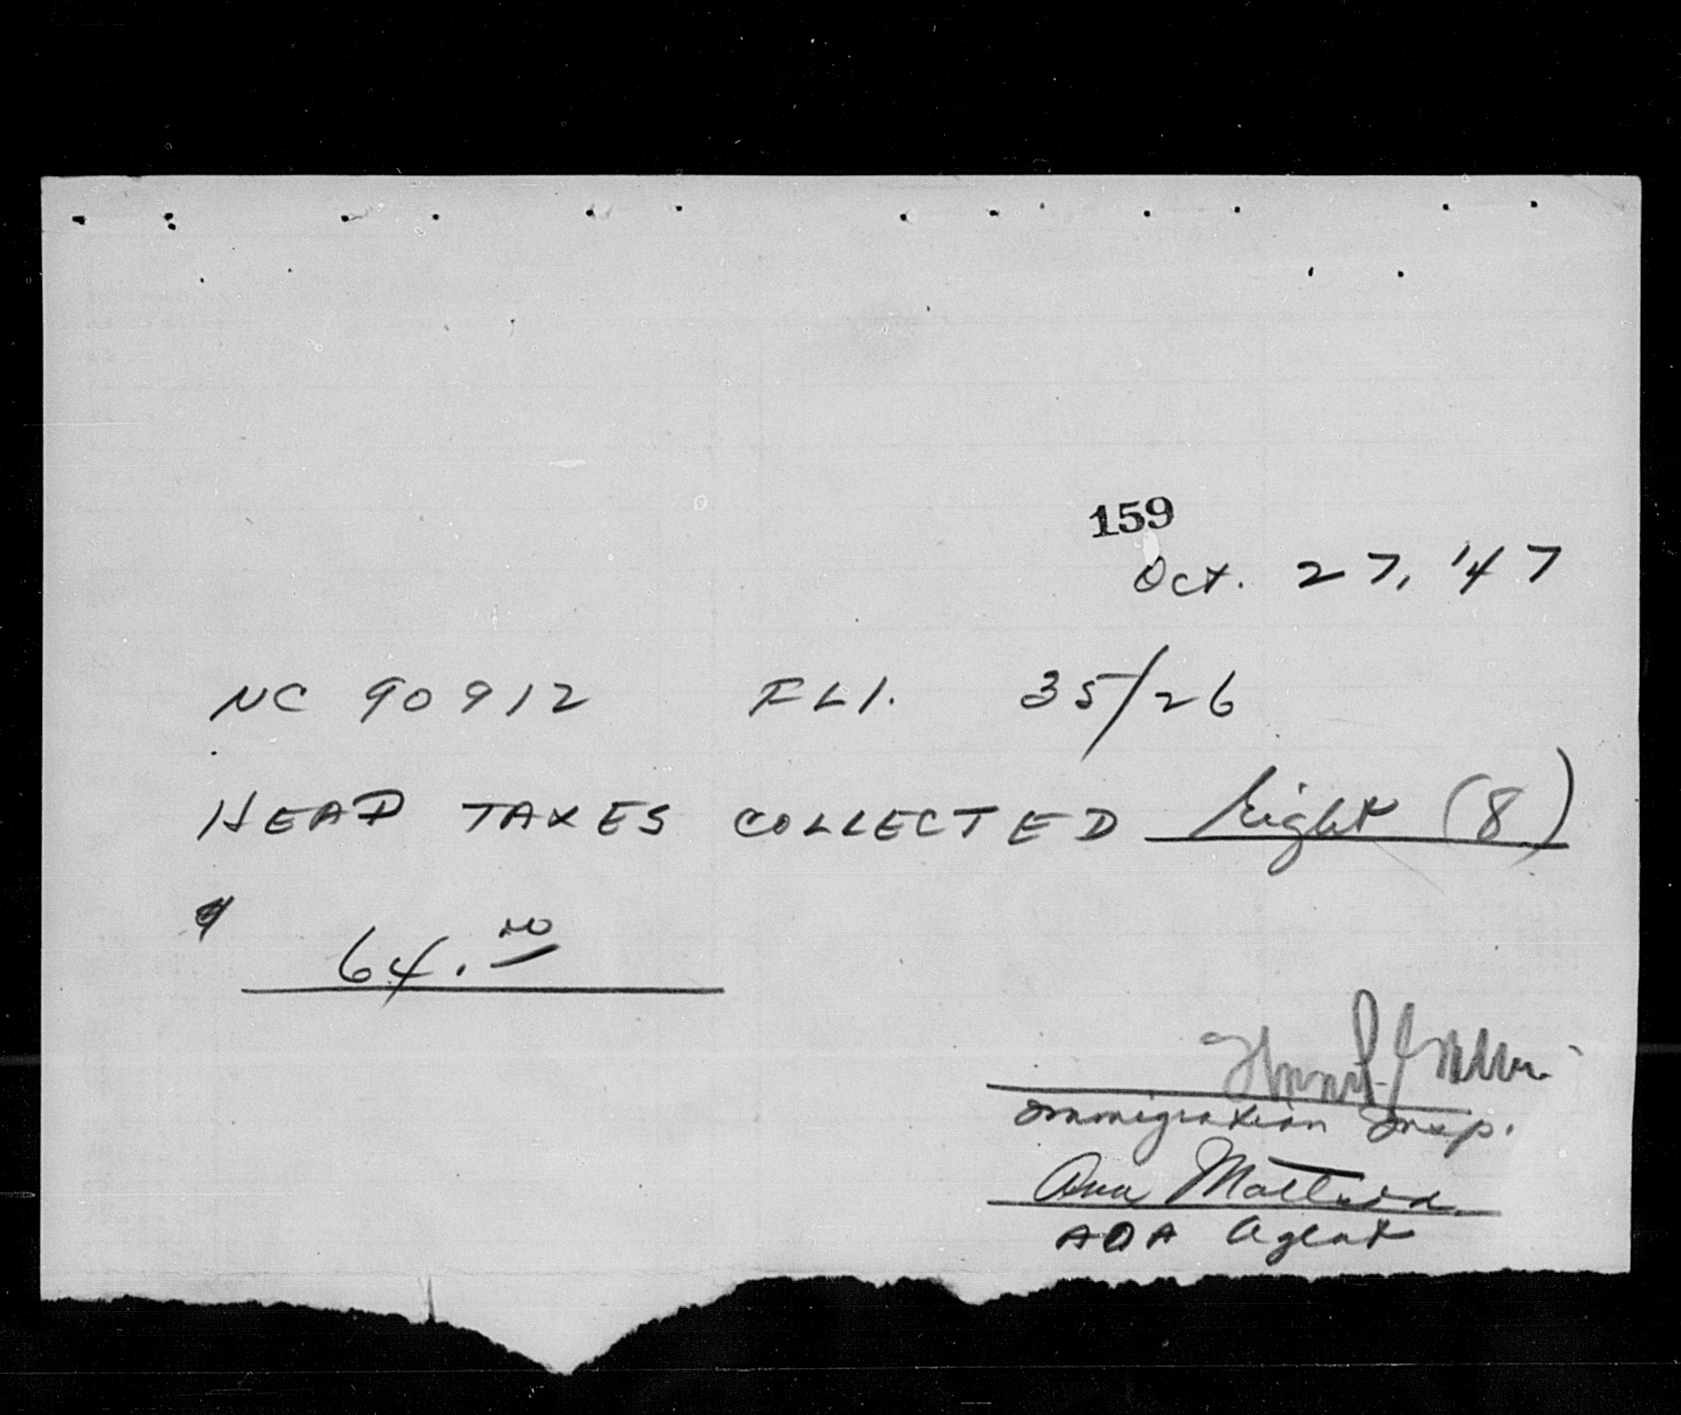 159
Oct. 27, '47
NC 90912 FLI. 35/26
HEAD TAXES COLLECTED Eight (8)
$ 64.00
Immigration Insp.
Ana
AOA Agent